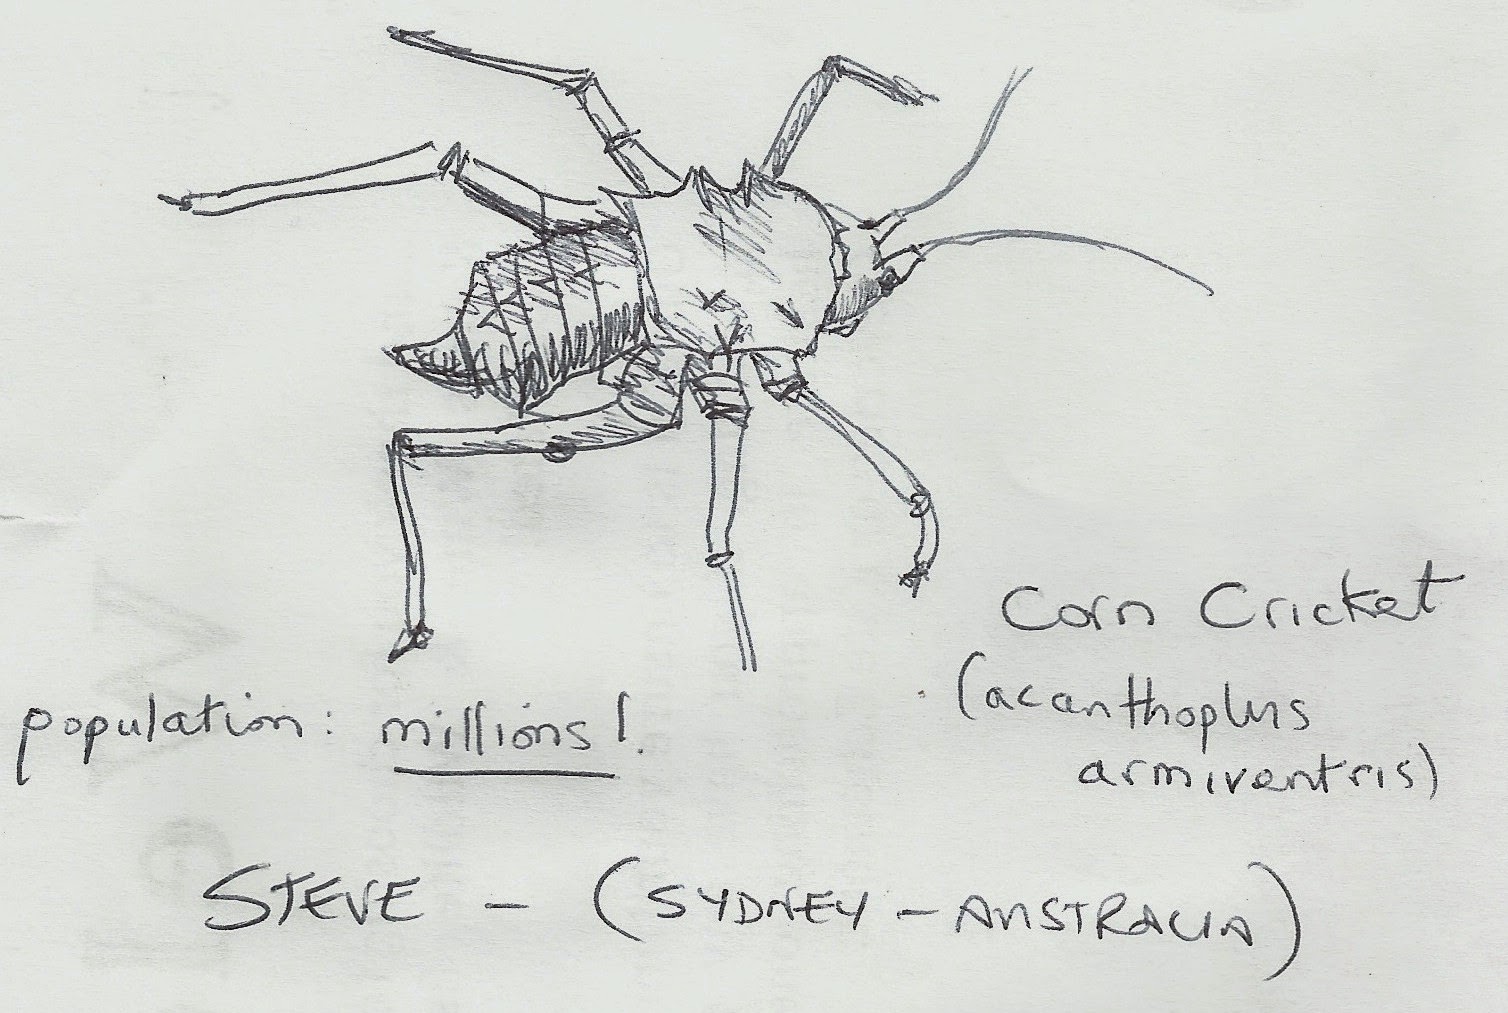 Corn Cricket
(acanthoplus
armiventris)
population: millions!
STEVE - (SYDNEY - AUSTRALIA)